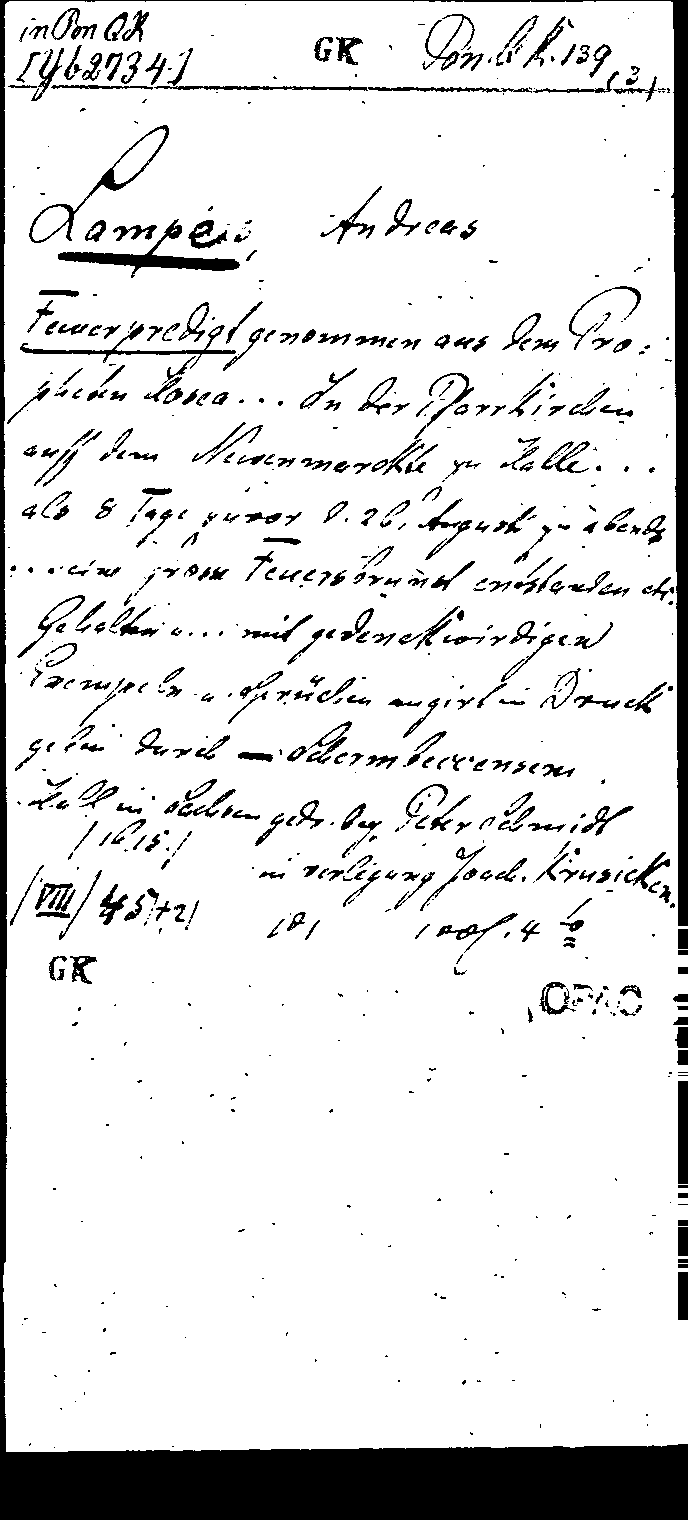 in Pon QK
[Yb2734.]
GK
Pon. QK. 139, (3)
Lampe, Andreas
Feuerpredigt genommen aus dem Pro-
pheten Hosea... In der Pfarrkirchen
auff dem Neuenmarckte zu Halle...
als 8 Tage zuvor d. 26. August zu abends
... eine grosse Feuersbrunst entstanden etc.
Gehalten u... mit gedenckwirdigen
Exempeln u. Sprüchen in Druck
geben durch
Hall in Sachsen gedr. bey Peter Schmidt
/1615./
in verlegung Joach. Krusicken.
/VIII/ 45/+2/
4 to
GK
OPAC